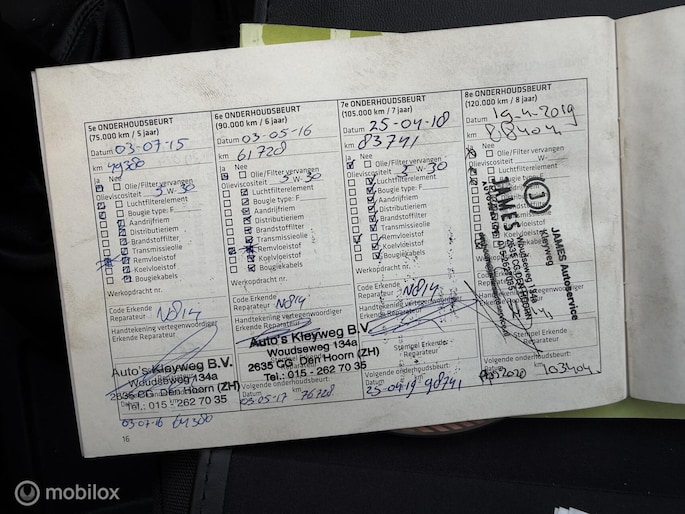 5e ONDERHOUDSBEURT
(75.000 km / 5 jaar)
Datum 03-07-15
km 49380
Ja Nee
Olie/Filter vervangen
Olieviscositeit 5 W-30
Luchtfilterelement
Bougie type: F
Aandrijfriem
Distributieriem
Brandstoffilter
Transmissieolie
Remvloeistof
Koelvloeistof
Bougiekabels
Werkopdracht nr.
Code Erkende
Reparateur N814
Handtekening vertegenwoordiger
Erkende Reparateur
Auto's Kleyweg B.V.
Woudseweg 134a
2635 CG Den Hoorn (ZH)
Tel.: 015 - 262 70 35
03-07-16 64380
16
6e ONDERHOUDSBEURT
(90.000 km / 6 jaar)
Datum 03-05-16
km 61728
Ja Nee
Olie/Filter vervangen
Olieviscositeit 5 W-30
Luchtfilterelement
Bougie type: F
Aandrijfriem
Distributieriem
Brandstoffilter
Transmissieolie
Remvloeistof
Koelvloeistof
Bougiekabels
Werkopdracht nr.
Code Erkende
Reparateur N814
Handtekening vertegenwoordiger
Erkende Reparateur
Auto's Kleyweg B.V.
Woudseweg 134a
2635 CG Den Hoorn (ZH)
Tel.: 015 - 262 70 35
Volgende onderhoudsbeurt:
Datum km
03-05-17 76728
7e ONDERHOUDSBEURT
(105.000 km / 7 jaar)
Datum 25-04-18
km 83741
Ja Nee
Olie/Filter vervangen
Olieviscositeit 5 W-30
Luchtfilterelement
Bougie type: F
Aandrijfriem
Distributieriem
Brandstoffilter
Transmissieolie
Remvloeistof
Koelvloeistof
Bougiekabels
Werkopdracht nr.
Code Erkende
Reparateur N814
Handtekening vertegenwoordiger
Erkende Reparateur
Stempel Erkende
Reparateur
Volgende onderhoudsbeurt:
Datum km
25-04-19 98741
8e ONDERHOUDSBEURT
(120.000 km / 8 jaar)
Datum 19-4-2019
km 88404
Ja Nee
Olie/Filter vervangen
Olieviscositeit W-
JAMES Autoservice
Kleyweg
Woudseweg 134a
JAMES
Stempel Erkende
Reparateur
Volgende onderhoudsbeurt:
Datum km
2020 103404
mobilox